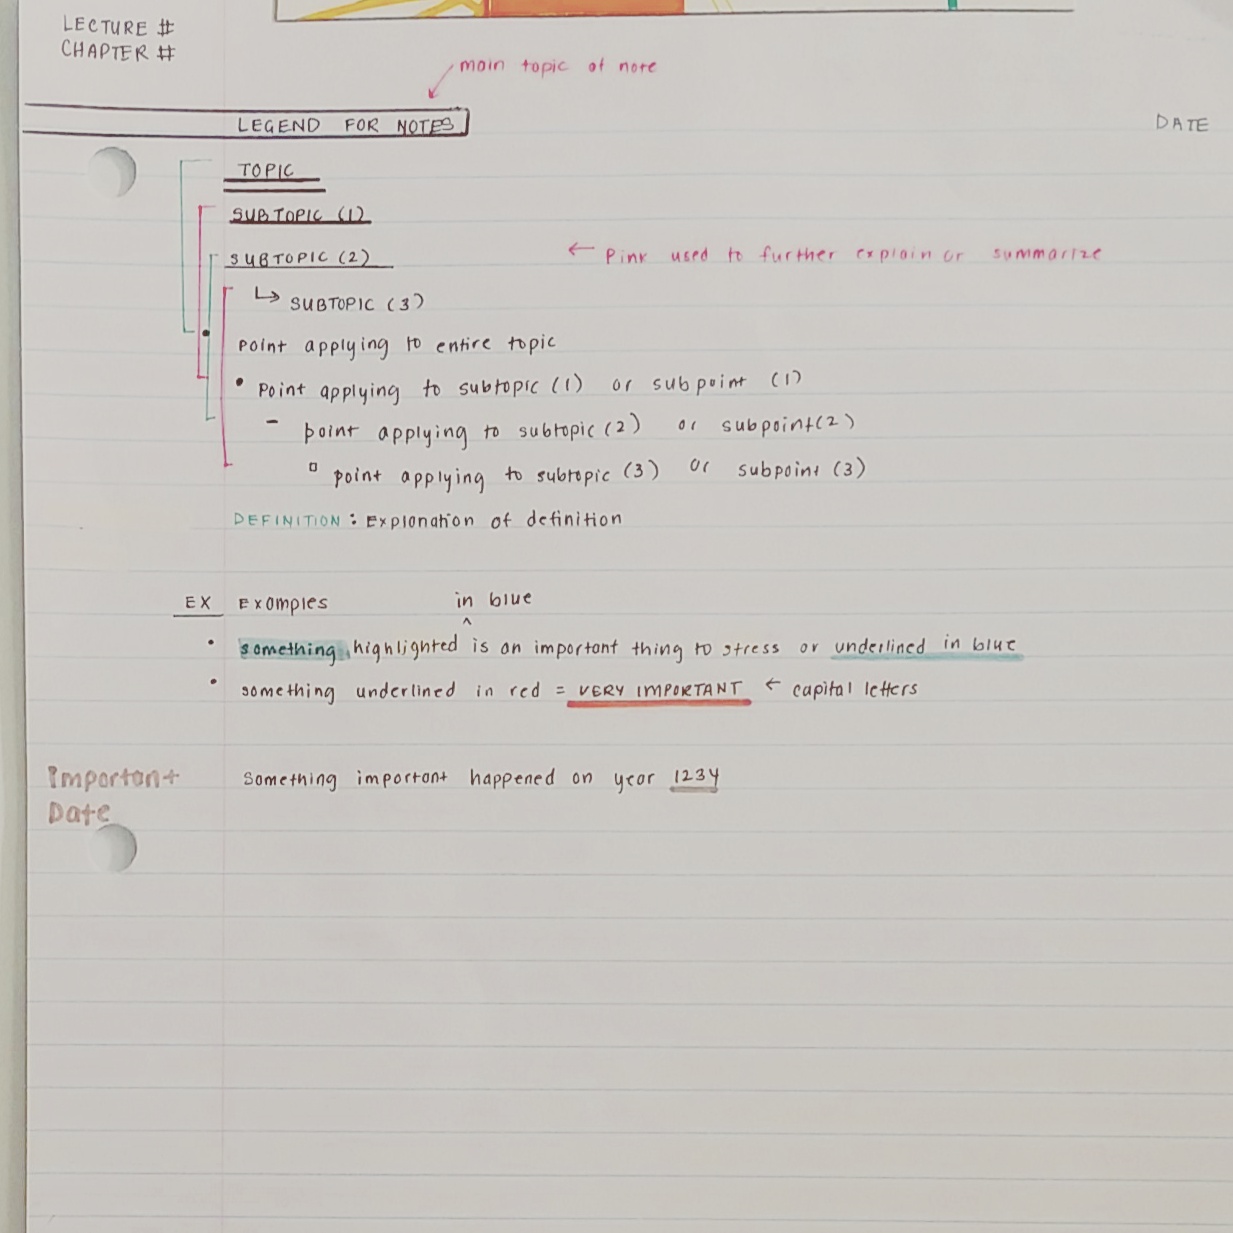 LECTURE #
CHAPTER #
main topic of note
LEGEND FOR NOTES
DATE
TOPIC
SUBTOPIC (1)
SUBTOPIC (2)
← Pink used to further explain or summarize
↳ SUBTOPIC (3)
• Point applying to entire topic
• Point applying to subtopic (1) or subpoint (1)
- point applying to subtopic (2) or subpoint (2)
▫ point applying to subtopic (3) or subpoint (3)
DEFINITION : Explanation of definition
EX Examples
in blue
^
• something highlighted is an important thing to stress or underlined in blue
• something underlined in red = VERY IMPORTANT ← capital letters
Important Something important happened on year 1234
Date